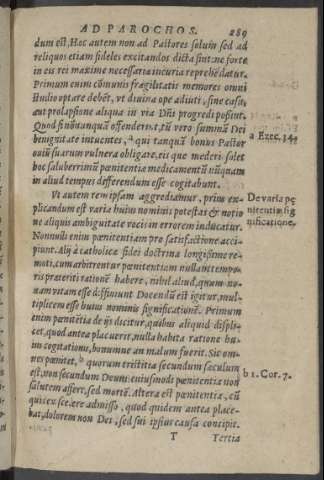 AD PAROCHOS. 289
dum est, Hoc autem non ad Pastores solum sed ad
reliquos etiam fideles excitandos dicta sint: ne forte
in eis rei maxime necessariæ incuria reprehẽdatur.
Primum enim cõmunis fragilitatis memores omni
studio optare debẽt, vt diuina ope adiuti, sine casu,
aut prolapsione aliqua in via Dñi progredi possint.
Quod si nõnunquã offenderint, tũ vero summã Dei
benignitatẽ intuentes, a qui tanquã bonus Pastor
ouiũ suarum vulnera obligare, eisque mederi solet
hoc saluberrimũ pœnitentiæ medicamentũ nũquam
in aliud tempus differendum esse cogitabunt.
a Ezec. 34.
Ut autem rem ipsam aggrediamur, primũ ex-
plicandum est varia huius nominis potestas & notio
ne aliquis ambiguitate vocis in errorem inducatur.
De varia pę
nitentiæ sig
nificatione.
Nonnulli enim pœnitentiam pro satisfactione acci-
piunt. Alij à catholicæ fidei doctrina longissime re-
moti, cum arbitrentur pœnitentiam nullam tempo-
ris præteriti rationẽ habere, nihil aliud, quam no-
uam vitam esse diffiniunt Docendũ est igitur, mul-
tiplicem esse huius nominis significationẽ. Primum
enim pœnitẽtia de ijs dicitur, quibus aliquid displi-
cet, quod antea placuerit, nulla habita ratione bo-
num cogitationis, bonumne an malum fuerit. Sic om-
nes pœnitet, b quorum tristitia secundum sæculum
est, non secundum Deum: cuiusmodi pœnitentia non
salutem affert, sed mortẽ. Altera est pœnitentia, cũ
b 1. Cor. 7.
quis ex scelere admisso, quod quidem antea place-
bat, dolorem non Dei, sed sui ipsius causa concipit.
T Tertia